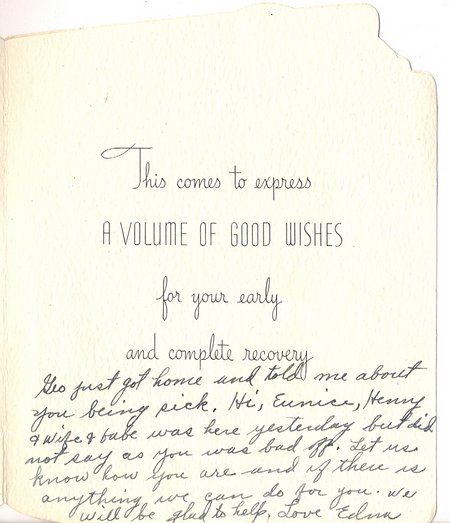 This comes to express
A VOLUME OF GOOD WISHES
for your early
and complete recovery
Geo just got home and told me about
you being sick. Hi, Eunice, Henry
& wife & babe was here yesterday but did
not say as you was bad off. Let us
know how you are and if there is
anything we can do for you. we
will be glad to help. Love Edna